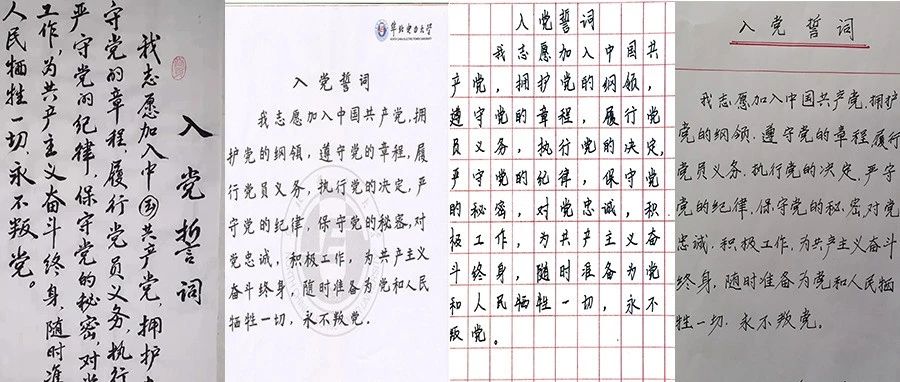 入党誓词
我志愿加入中国共产党，拥护
守党的章程，履行党员义务，执行
严守党的纪律，保守党的秘密，对
工作，为共产主义奋斗终身，随时准
人民牺牲一切，永不叛党。
华北电力大学
NORTH CHINA ELECTRIC POWER UNIVERSITY
入党誓词
我志愿加入中国共产党，拥
护党的纲领，遵守党的章程，履
行党员义务，执行党的决定，严
守党的纪律，保守党的秘密，对
党忠诚，积极工作，为共产主义
奋斗终身，随时准备为党和人民
牺牲一切，永不叛党．
入党誓词
我志愿加入中国共
产党，拥护党的纲领，
遵守党的章程，履行党
员义务，执行党的决定，
严守党的纪律，保守党
的秘密，对党忠诚，积
极工作，为共产主义奋
斗终身，随时准备为党
和人民牺牲一切，永不
叛党。
入党誓词
我志愿加入中国共产党，拥护
党的纲领，遵守党的章程，履行
党员义务，执行党的决定，严守
党的纪律，保守党的秘密，对党
忠诚，积极工作，为共产主义奋斗
终身，随时准备为党和人民牺
牲一切，永不叛党。